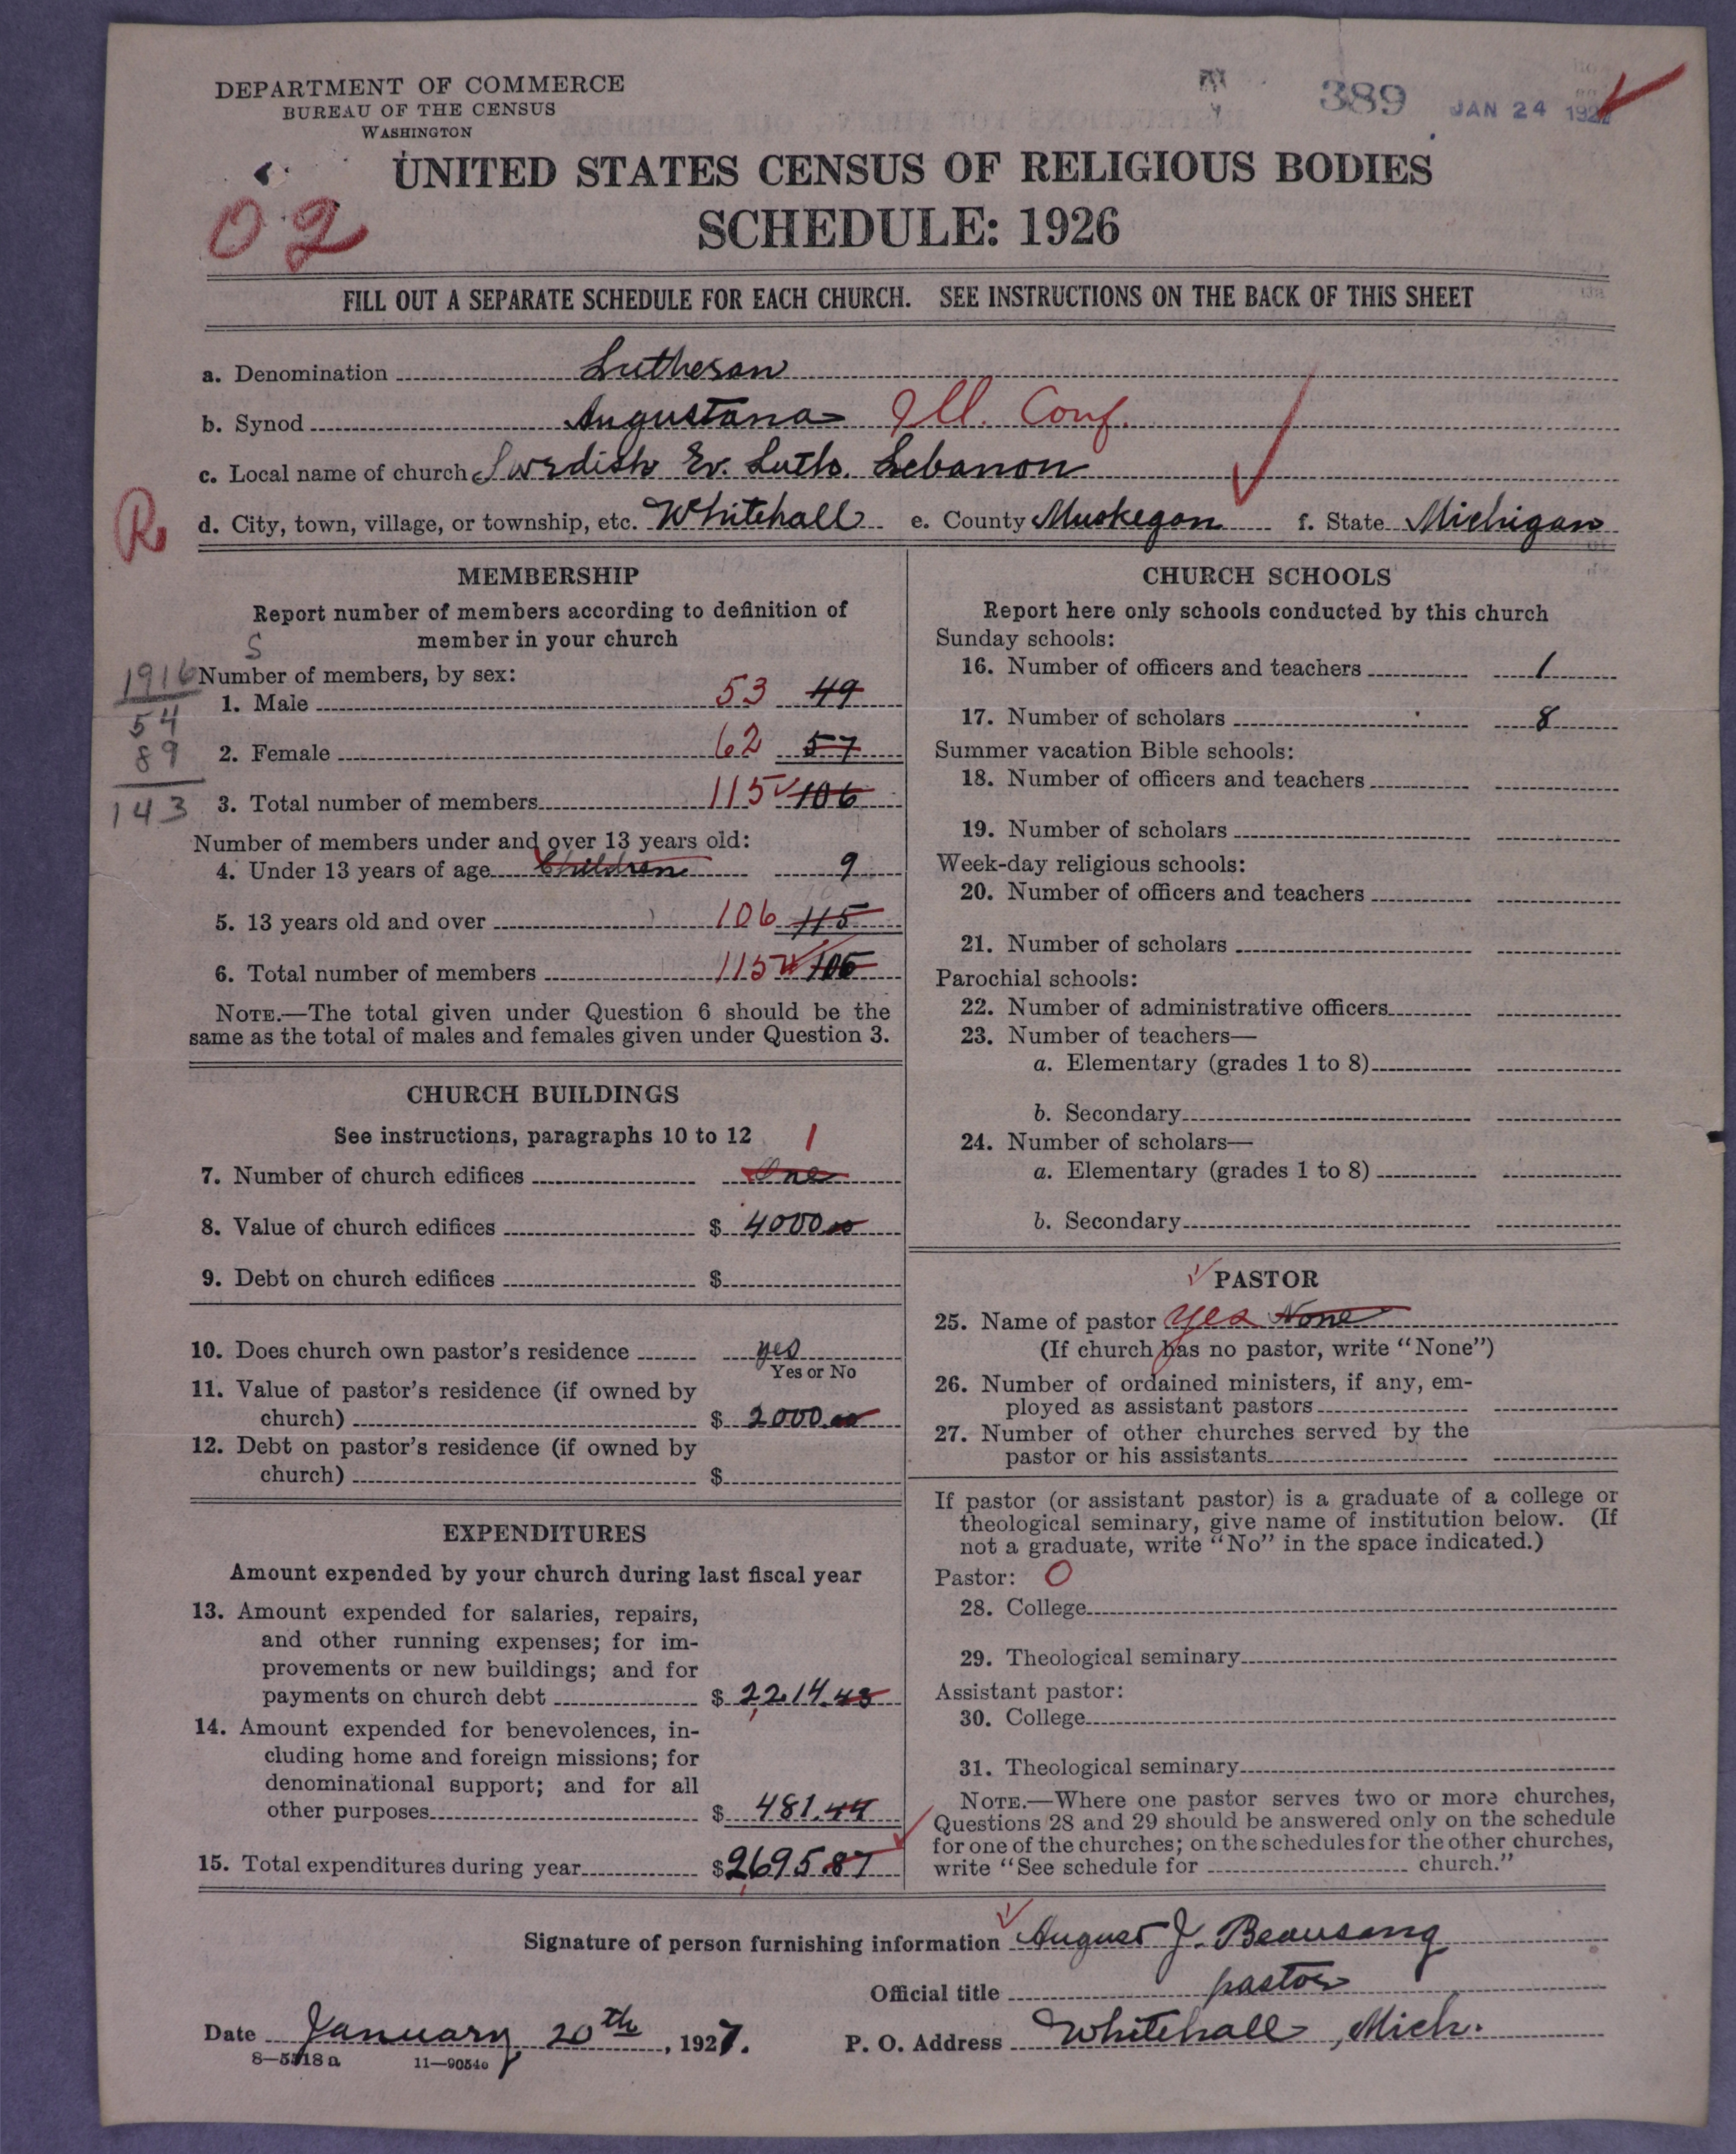 DEPARTMENT OF COMMERCE
BUREAU OF THE CENSUS
WASHINGTON
389 JAN 24 192
UNITED STATES CENSUS OF RELIGIOUS BODIES
02
SCHEDULE: 1926
FILL OUT A SEPARATE SCHEDULE FOR EACH CHURCH. SEE INSTRUCTIONS ON THE BACK OF THIS SHEET
a. Denomination Lutheran
b. Synod Augustana Ill. Conf.
c. Local name of church Swedish Ev. Luth. Lebanon
R d. City, town, village, or township, etc. Whitehall e. County Muskegon f. State Michigan
MEMBERSHIP
Report number of members according to definition of
member in your church
S
1916 Number of members, by sex:
1. Male 53 49
54
2. Female 62 57
89
3. Total number of members 115 106
143
Number of members under and over 13 years old:
4. Under 13 years of age Children 9
5. 13 years old and over 106 115
6. Total number of members 115 106
NOTE.—The total given under Question 6 should be the
same as the total of males and females given under Question 3.
CHURCH BUILDINGS
See instructions, paragraphs 10 to 12
1
7. Number of church edifices One
8. Value of church edifices $ 4000.00
9. Debt on church edifices $
10. Does church own pastor's residence yes
Yes or No
11. Value of pastor's residence (if owned by
church) $ 2000.00
12. Debt on pastor's residence (if owned by
church) $
EXPENDITURES
Amount expended by your church during last fiscal year
13. Amount expended for salaries, repairs,
and other running expenses; for im-
provements or new buildings; and for
payments on church debt $ 2214.43
14. Amount expended for benevolences, in-
cluding home and foreign missions; for
denominational support; and for all
other purposes $ 481.44
15. Total expenditures during year $ 2695.87
CHURCH SCHOOLS
Report here only schools conducted by this church
Sunday schools:
16. Number of officers and teachers 1
17. Number of scholars 8
Summer vacation Bible schools:
18. Number of officers and teachers
19. Number of scholars
Week-day religious schools:
20. Number of officers and teachers
21. Number of scholars
Parochial schools:
22. Number of administrative officers
23. Number of teachers—
a. Elementary (grades 1 to 8)
b. Secondary
24. Number of scholars—
a. Elementary (grades 1 to 8)
b. Secondary
PASTOR
25. Name of pastor yes None
(If church has no pastor, write "None")
26. Number of ordained ministers, if any, em-
ployed as assistant pastors
27. Number of other churches served by the
pastor or his assistants
If pastor (or assistant pastor) is a graduate of a college or
theological seminary, give name of institution below. (If
not a graduate, write "No" in the space indicated.)
Pastor: O
28. College
29. Theological seminary
Assistant pastor:
30. College
31. Theological seminary
NOTE.—Where one pastor serves two or more churches,
Questions 28 and 29 should be answered only on the schedule
for one of the churches; on the schedules for the other churches,
write "See schedule for church."
Signature of person furnishing information August J. Beausang
Official title pastor
Date January 20th, 1927. P. O. Address Whitehall, Mich.
8—5318 a 11—9054